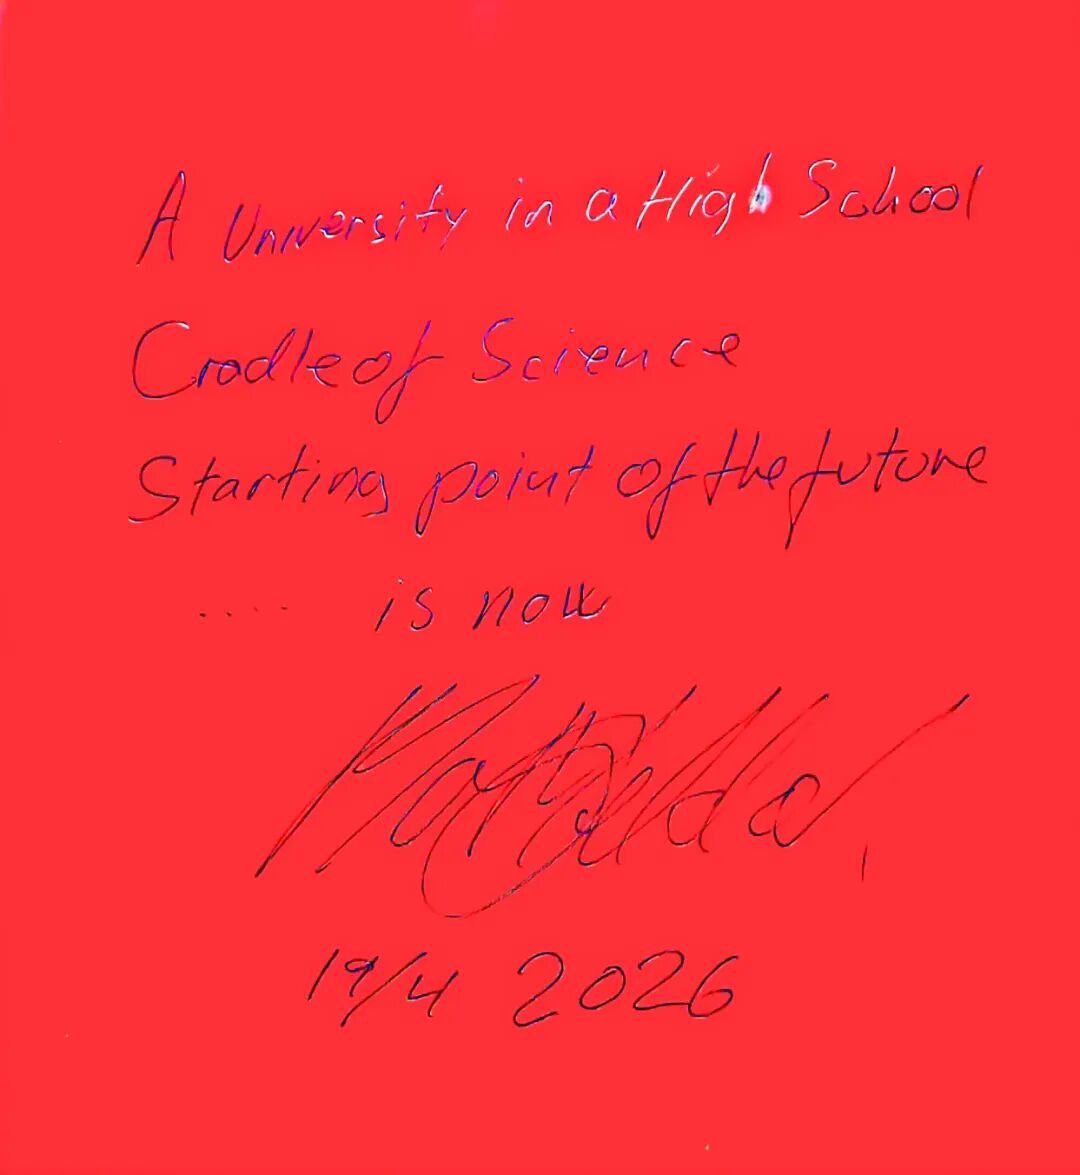 A University in a High School
Cradle of Science
Starting point of the future
.... is now
19/4 2026